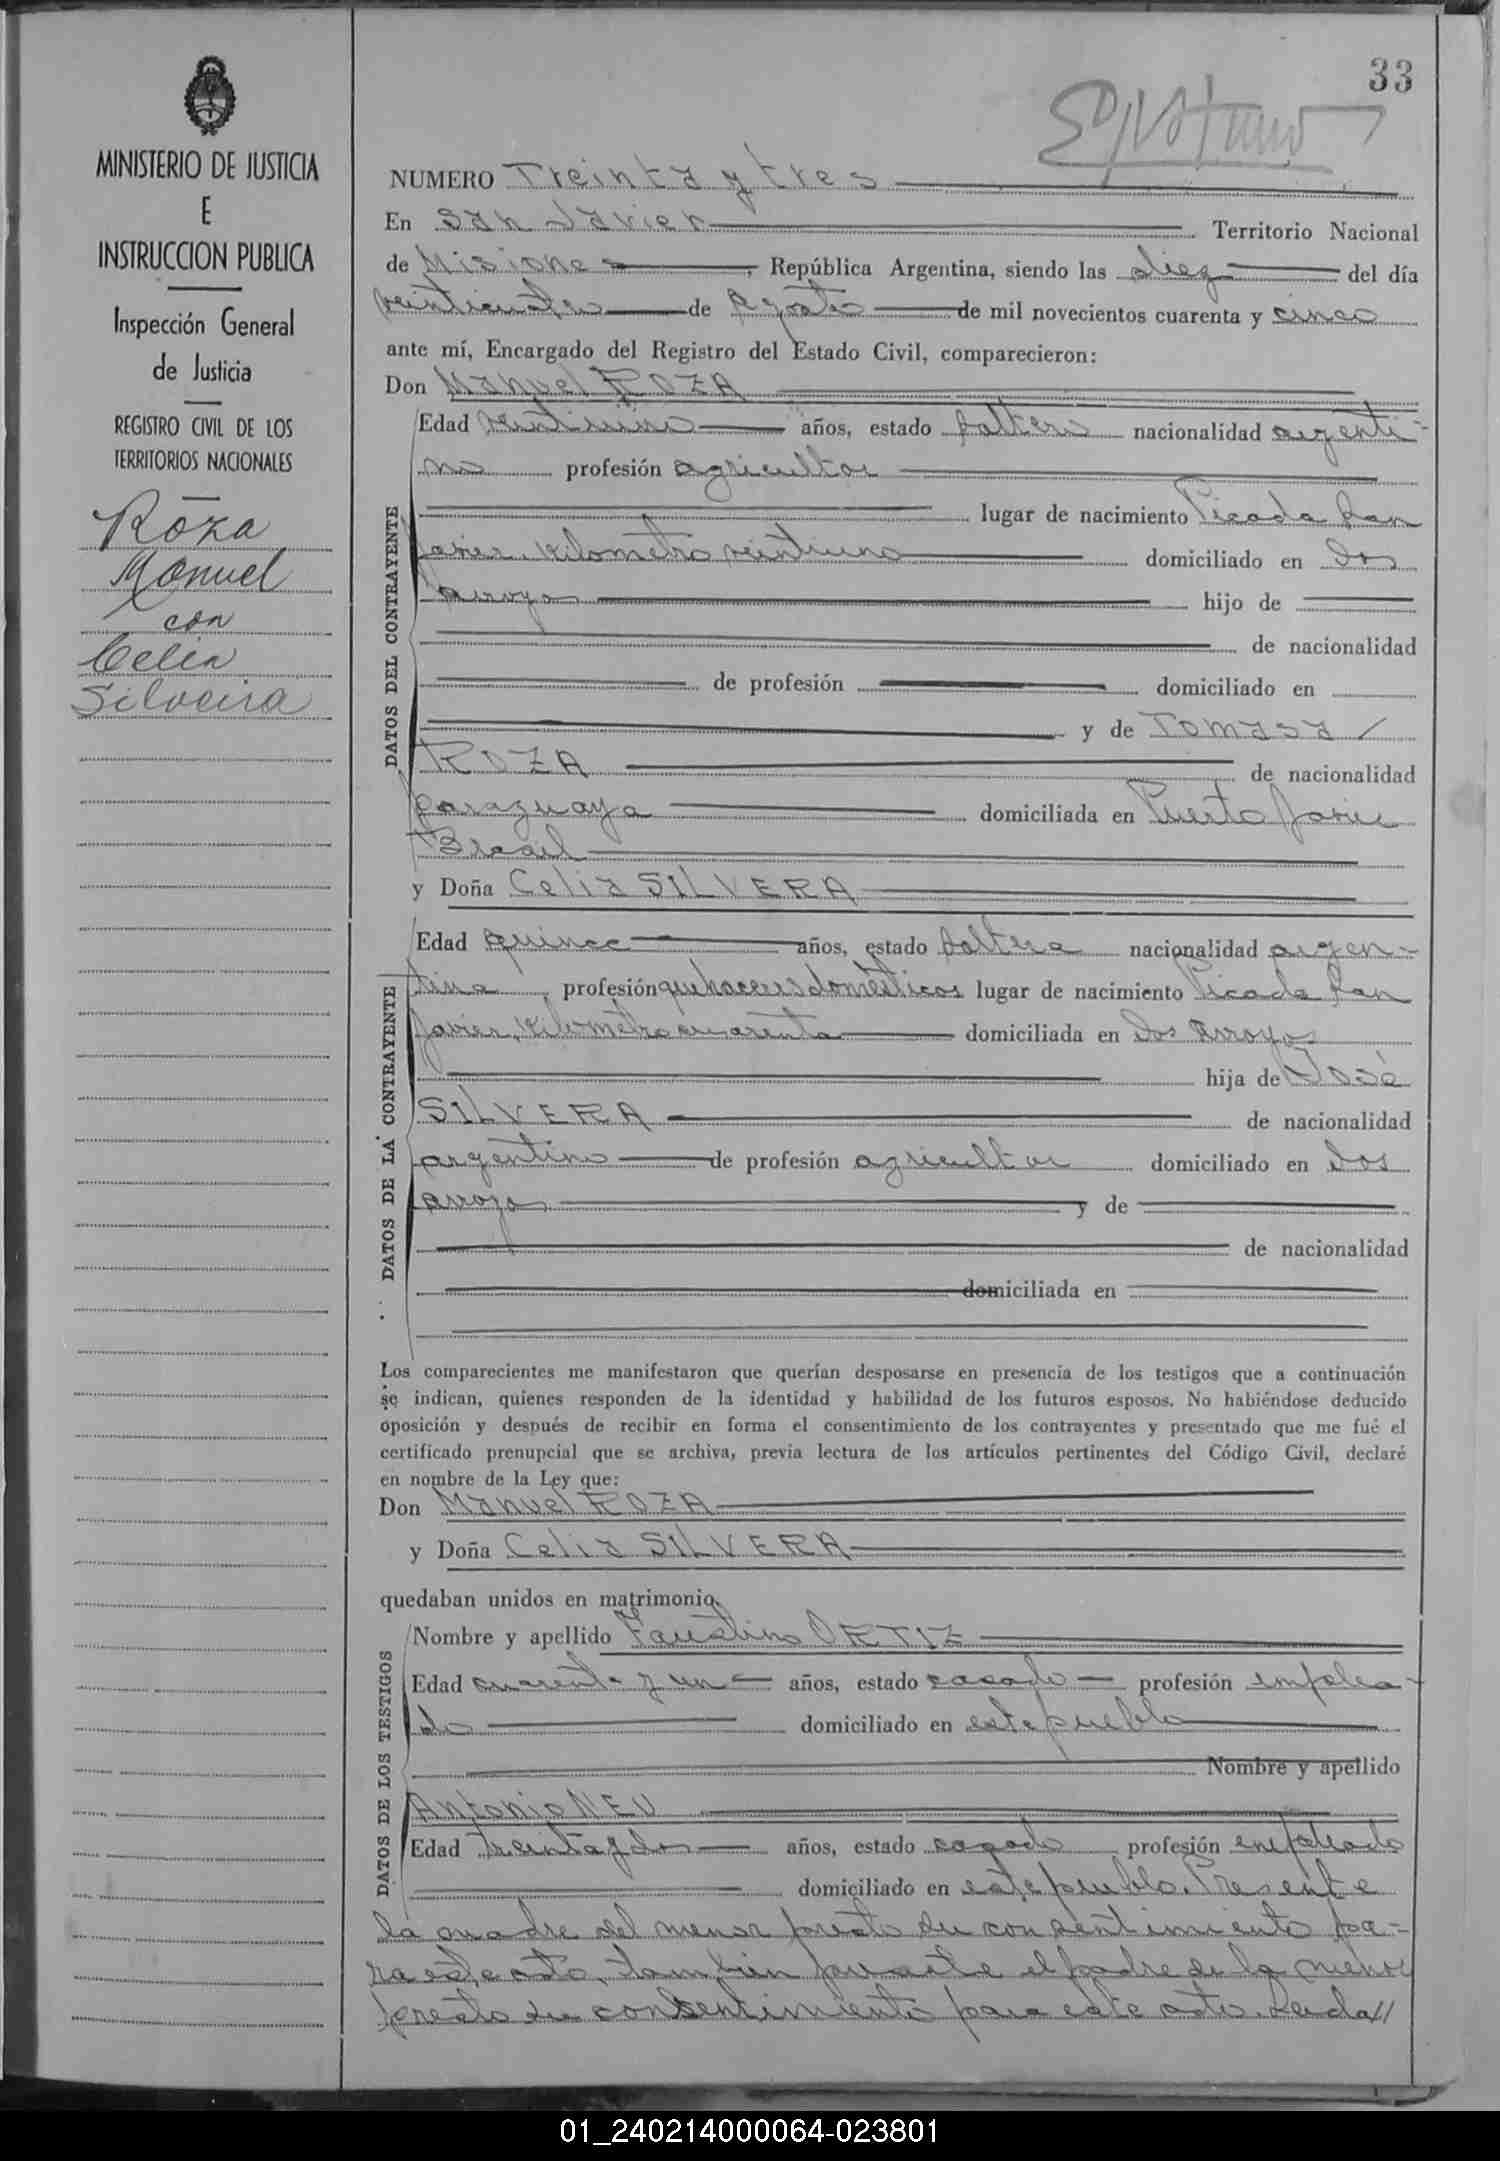 33
MINISTERIO DE JUSTICIA
E
INSTRUCCION PUBLICA
Inspección General
de Justicia
REGISTRO CIVIL DE LOS
TERRITORIOS NACIONALES
Roza
Manuel
con
Celia
Silveira
NUMERO Treinta y tres
En San Javier Territorio Nacional
de Misiones, República Argentina, siendo las diez del día
veinticuatro de Agosto de mil novecientos cuarenta y cinco
ante mí, Encargado del Registro del Estado Civil, comparecieron:
Don Manuel ROZA
DATOS DEL CONTRAYENTE
Edad veintiuno años, estado soltero nacionalidad argenti-
no profesión agricultor
lugar de nacimiento Picada San
Javier, Kilometro veintiuno domiciliado en Dos
Arroyos hijo de
de nacionalidad
de profesión domiciliado en
y de Tomasa
ROZA de nacionalidad
paraguaya domiciliada en Puerto Javier
Brasil
y Doña Celia SILVERA
DATOS DE LA CONTRAYENTE
Edad quince años, estado soltera nacionalidad argen-
tina, profesión quehaceres domésticos lugar de nacimiento Picada San
Javier, Kilometro cuarenta domiciliada en Dos Arroyos
hija de José
SILVERA de nacionalidad
argentino de profesión agricultor domiciliado en Dos
arroyos y de
de nacionalidad
domiciliada en
Los comparecientes me manifestaron que querían desposarse en presencia de los testigos que a continuación
se indican, quienes responden de la identidad y habilidad de los futuros esposos. No habiéndose deducido
oposición y después de recibir en forma el consentimiento de los contrayentes y presentado que me fué el
certificado prenupcial que se archiva, previa lectura de los artículos pertinentes del Código Civil, declaré
en nombre de la Ley que:
Don Manuel ROZA
y Doña Celia SILVERA
quedaban unidos en matrimonio.
DATOS DE LOS TESTIGOS
Nombre y apellido Faustino ORTIZ
Edad cuarenta y un años, estado casado profesión emplea-
do domiciliado en este pueblo
Nombre y apellido
Antonio NEU
Edad treinta y dos años, estado casado profesión empleado
domiciliado en este pueblo. Presente
la madre del menor presto su consentimiento pa-
ra este acto, tambien presente el padre de la menor
presto su consentimiento para este acto. Leida//
01_240214000064-023801